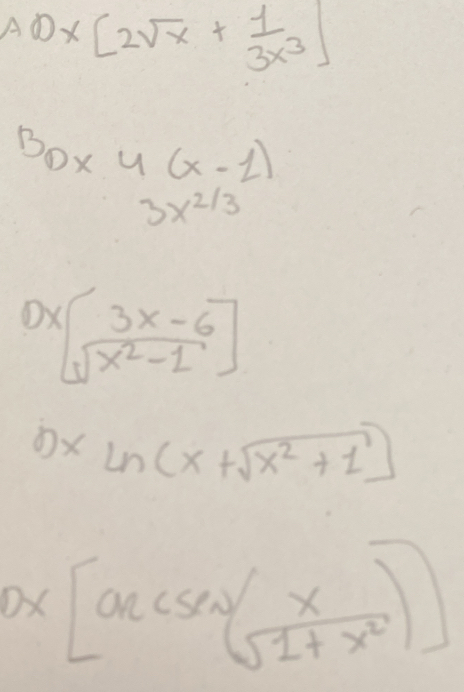 A Dx [2√x + 1/3x³]
B Dx 4 (x - 1)
3x^2/3
Dx [3x - 6 / √x² - 1]
Dx Ln(x + √x² + 1)]
Dx [arcsen(x / √1 + x²)]